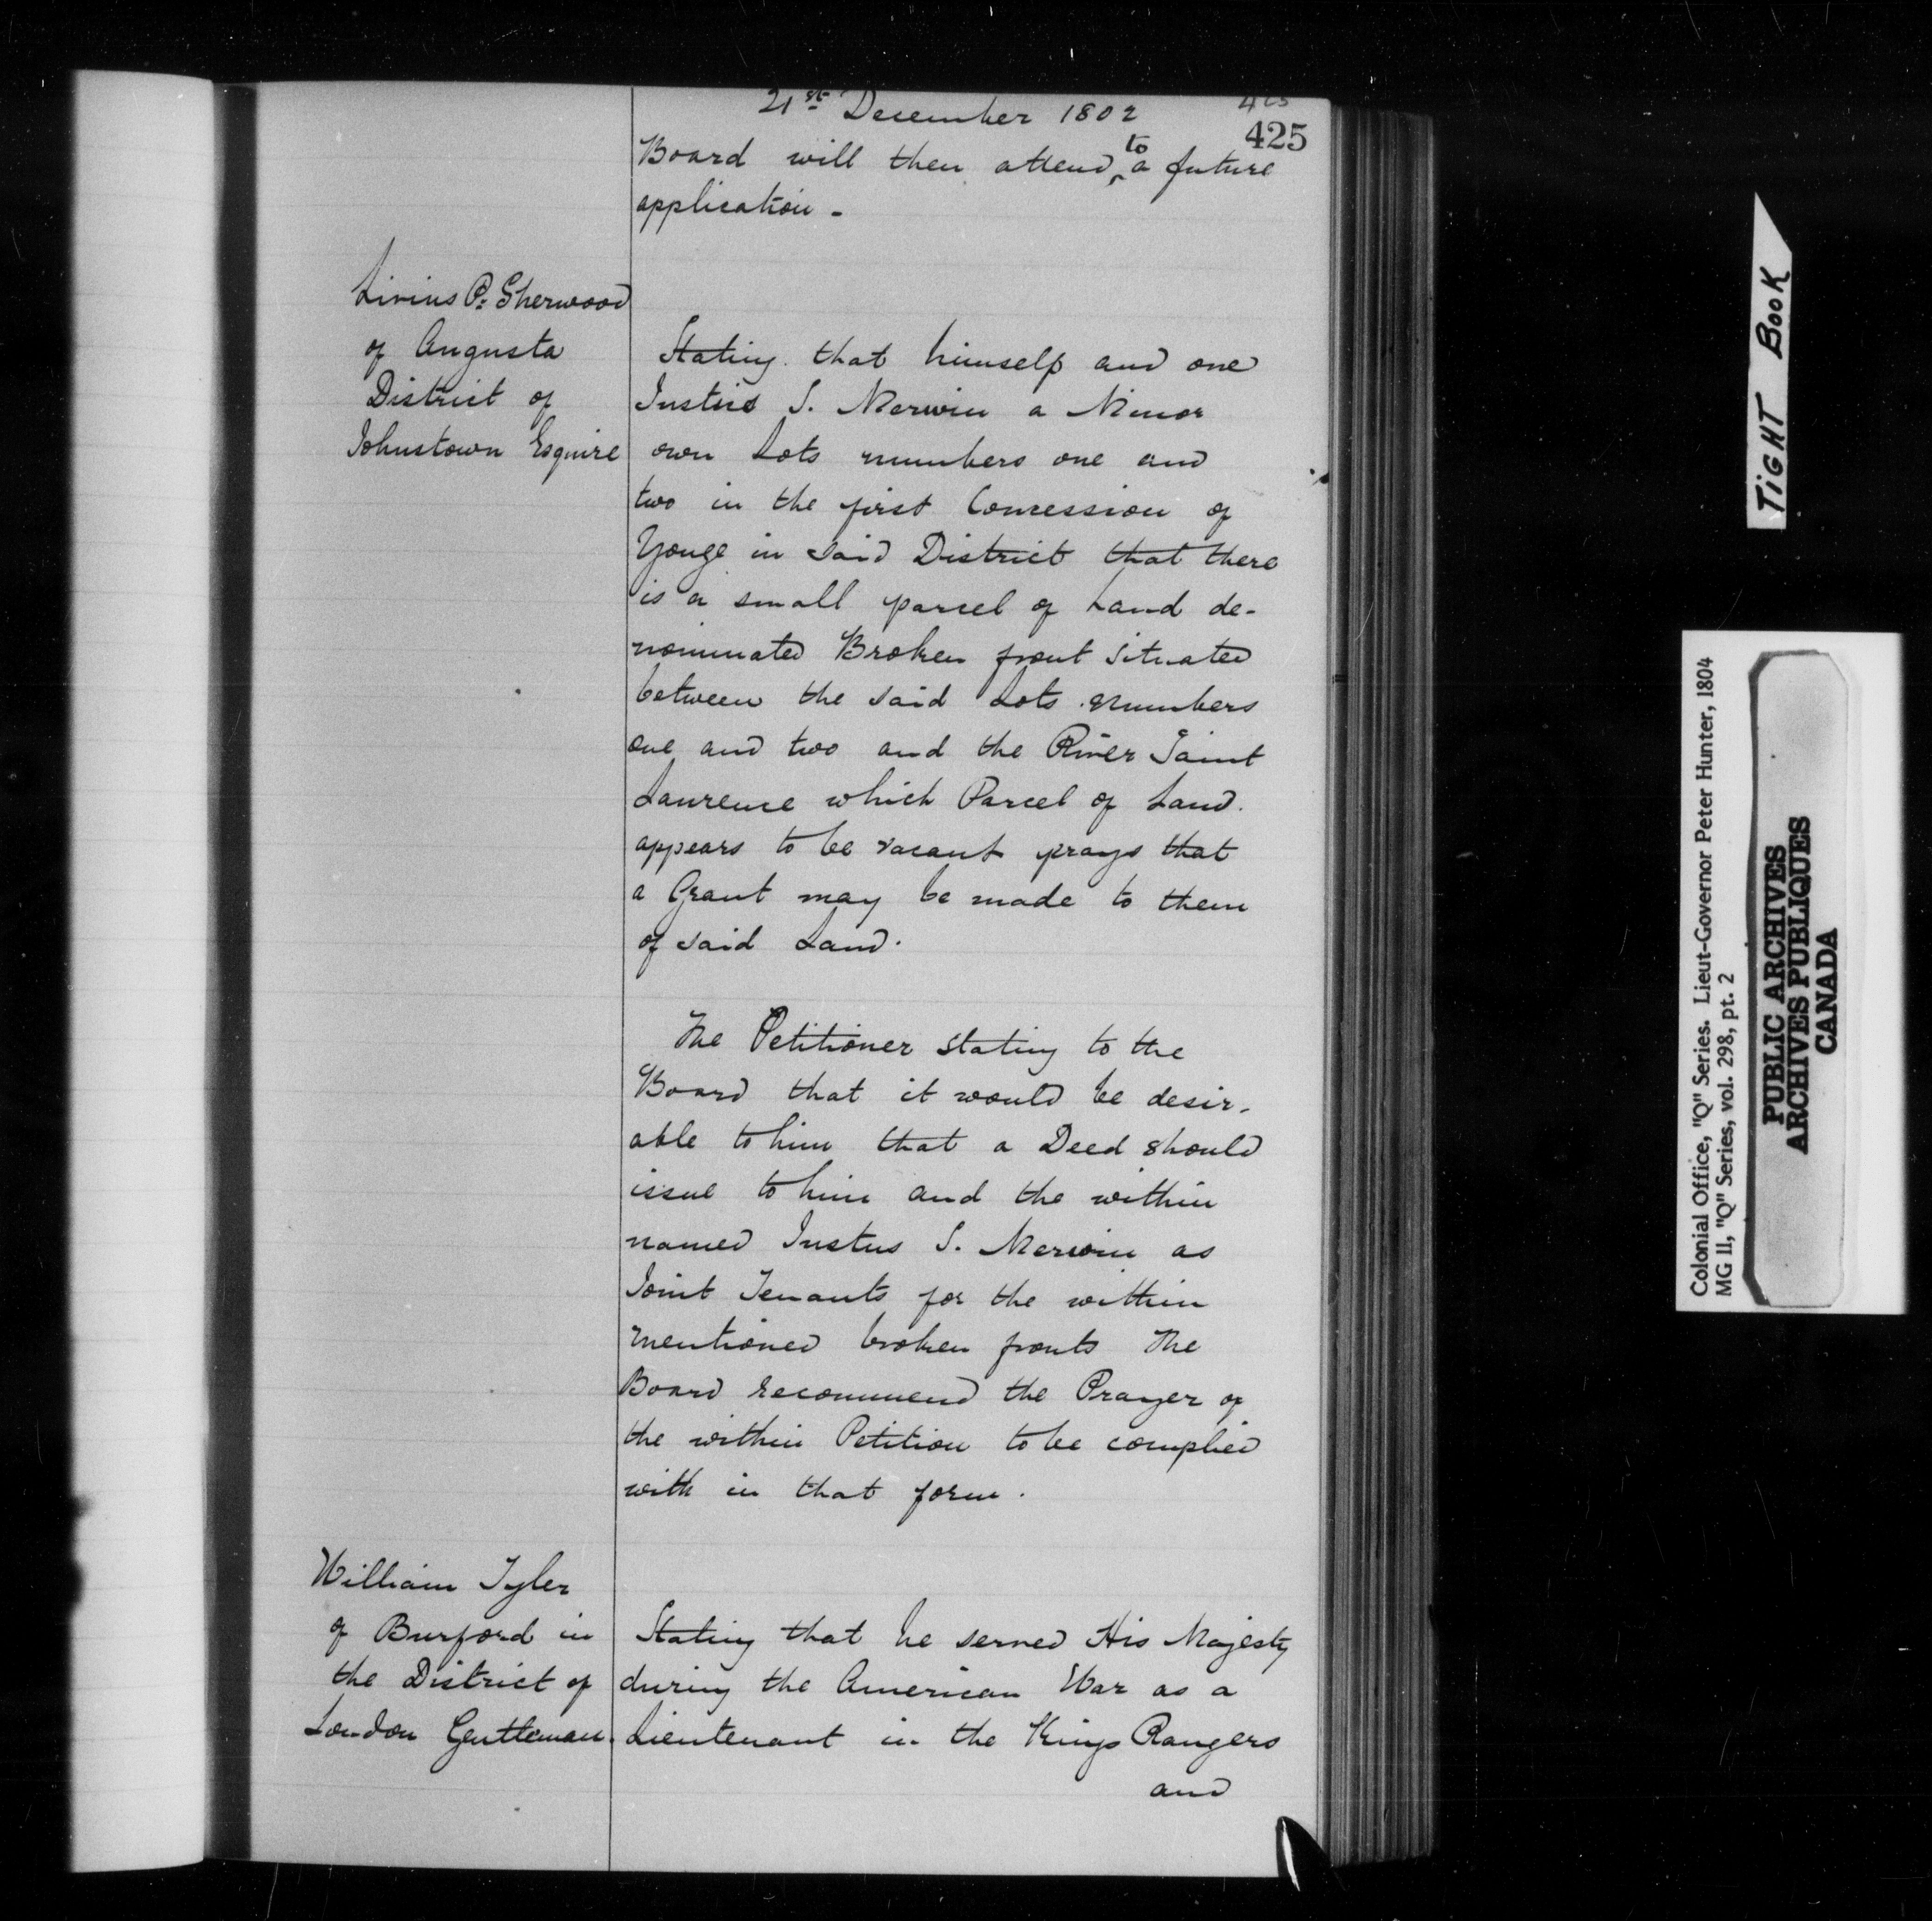 21st December 1802
425
Board will then attend to a future
application -
Livius P. Sherwood
of Augusta
District of
Johnstown Esquire
Stating that himself and one
Justus S. Merwin a Minor
own Lots numbers one and
two in the first Concession of
Yonge in said District that there
is a small parcel of Land de-
nominated Broken front situated
between the said Lots numbers
one and two and the River Saint
Laurence which Parcel of Land
appears to be vacant prays that
a Grant may be made to them
of said Land.
The Petitioner stating to the
Board that it would be desir-
able to him that a Deed should
issue to him and the within
named Justus S. Merwin as
Joint Tenants for the within
mentioned broken fronts The
Board recommend the Prayer of
the within Petition to be complied
with in that form.
William Tyler
of Burford in
the District of
London Gentleman.
Stating that he served His Majesty
during the American War as a
Lieutenant in the Kings Rangers
and
TIGHT BOOK
Colonial Office, "Q" Series. Lieut-Governor Peter Hunter, 1804
MG II, "Q" Series, vol. 298, pt. 2
PUBLIC ARCHIVES
ARCHIVES PUBLIQUES
CANADA